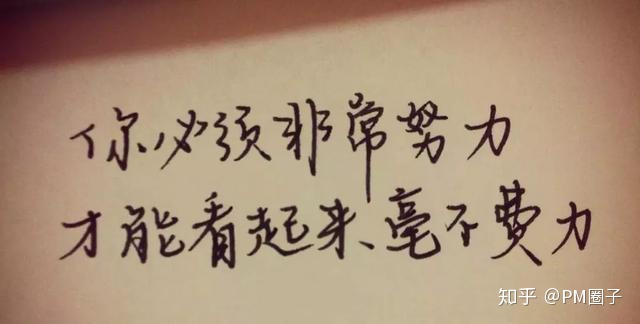 你必须非常努力
才能看起来、毫不费力
知乎 @PM圈子